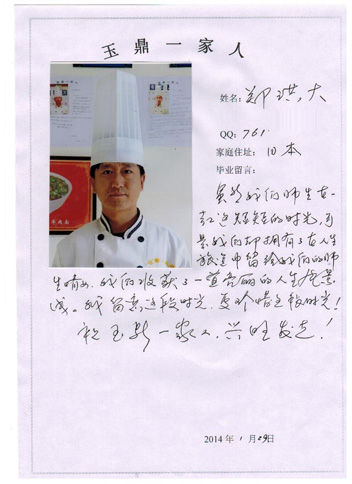 玉鼎一家人
姓名：郑琪大
QQ：761
家庭住址：日本
毕业留言：
虽然我们师生在
一起是短短的时光，可
是我们却拥有了在人生
旅途中留给我们的师
生情，我们收获了一道亮丽的人生风景
线。我留恋这段时光，更珍惜这段时光！
祝玉鼎一家人，兴旺发达！
2014年1月29日